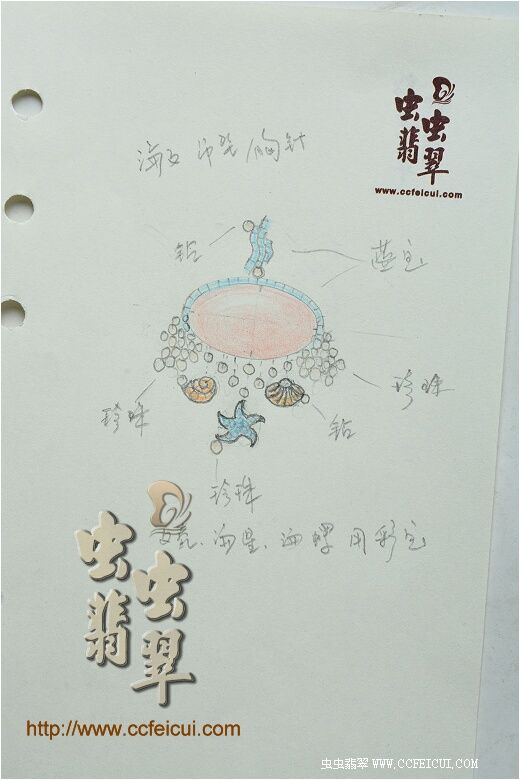 虫虫翡翠
www.ccfeicui.com
胸针
钻
蓝宝
珍珠
珍珠
钻
珍珠
海星、海螺用彩宝
虫虫翡翠
http://www.ccfeicui.com
虫虫翡翠 www.CCFEICUI.COM